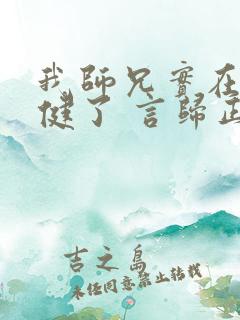 我師兄實在
健了 言歸正
吉之島
未經同意禁止轉載